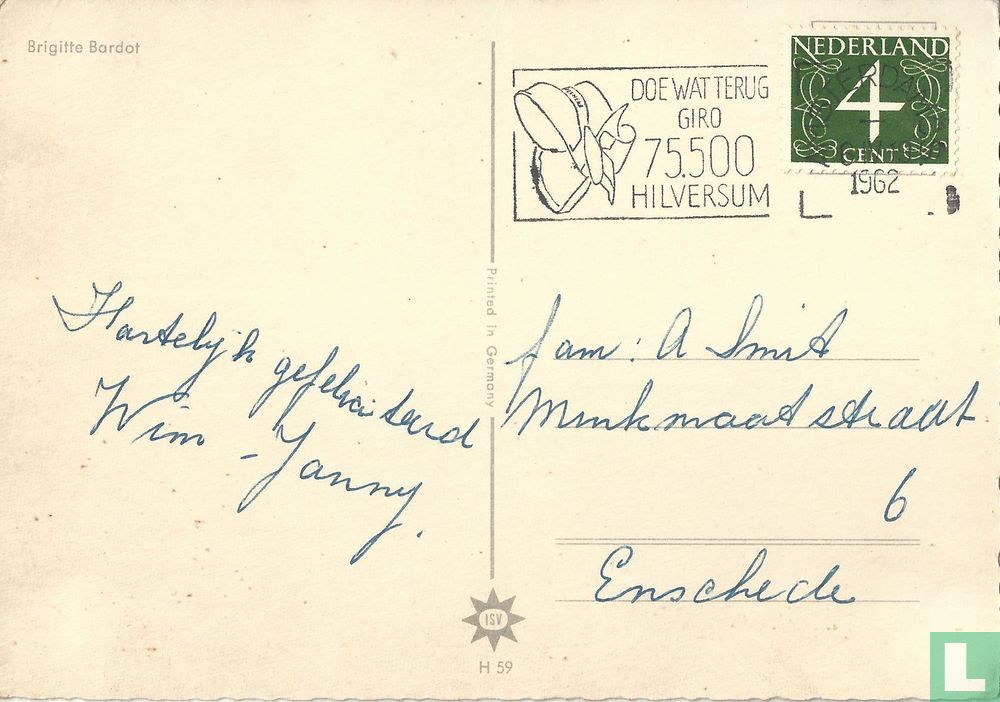 Brigitte Bardot
DOE WAT TERUG
GIRO
75.500
HILVERSUM
NEDERLAND
4
CENT
AMSTERDAM
1962
Hartelijk gefeliciteerd
Wim - Janny.
Printed in Germany
fam: A Smit
Menkmaatstraat
6
Enschede
ISV
H 59
L